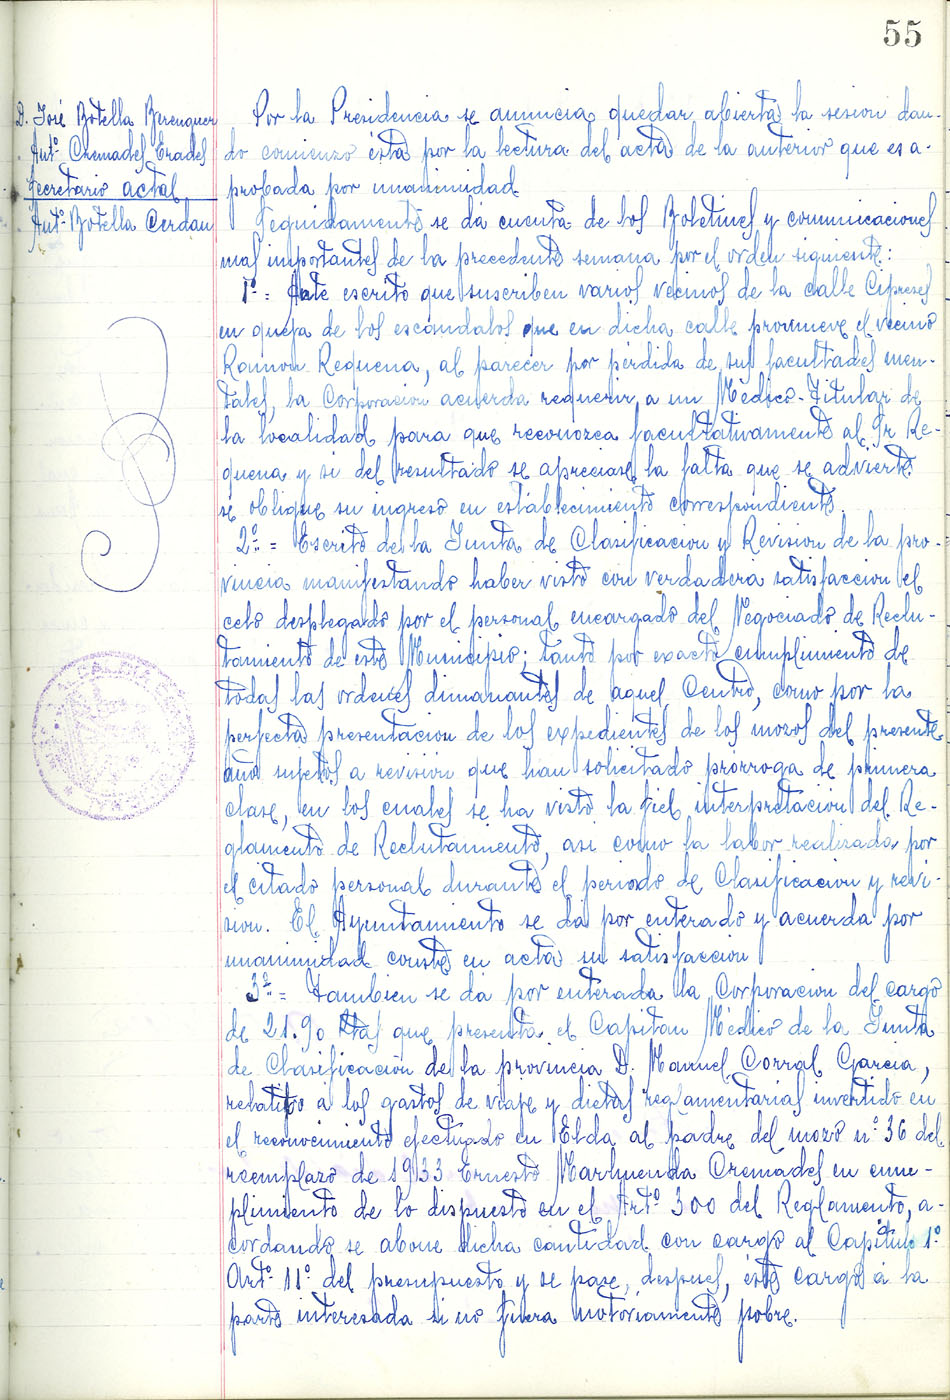 55
D. José Botella Berenguer
Antº Cremades Erades
Secretario actal
Antº Botella Cerdán
Por la Presidencia se anuncia quedar abierta la sesion dan-
do comienzo ésta por la lectura del acta de la anterior que es a-
probada por unanimidad.
Seguidamente se da cuenta de los Boletines y comunicaciones
mas importantes de la precedente semana por el orden siguiente:
1º = Ante escrito que suscriben varios vecinos de la calle Cipreses
en queja de los escándalos que en dicha calle promueve el vecino
Ramon Requena, al parecer por pérdida de sus facultades men-
tales, la Corporacion acuerda requerir a un Médico-Titular de
la localidad para que reconozca facultativamente al Sr Re-
quena y si del resultado se apreciase la falta que se advierte
se obligue su ingreso en establecimiento correspondiente.
2º = Escrito de la Junta de Clasificacion y Revision de la pro-
vincia manifestando haber visto con verdadera satisfaccion el
celo desplegado por el personal encargado del Negociado de Reclu-
tamiento de este Municipio; tanto por exacto cumplimiento de
todas las ordenes dimanantes de aquel Centro, como por la
perfecta presentacion de los expedientes de los mozos del presente
año sujetos a revision que han solicitado prorroga de primera
clase, en los cuales se ha visto la fiel interpretacion del Re-
glamento de Reclutamiento, asi como la labor realizada por
el citado personal durante el periodo de Clasificacion y revi-
sion. El Ayuntamiento se da por enterado y acuerda por
unanimidad conste en acta su satisfaccion
3º = Tambien se da por enterada la Corporacion del cargo
de 21.90 ptas que presenta el Capitan Médico de la Junta
de Clasificacion de la provincia D. Manuel Corral Garcia,
relativo a los gastos de viaje y dietas reglamentarias invertido en
el reconocimiento efectuado en Elda al padre del mozo nº 36 del
reemplazo de 1933 Ernesto Marhuenda Cremades en cum-
plimiento de lo dispuesto en el Artº 300 del Reglamento, a-
cordando se abone dicha cantidad con cargo al Capitulo 1º
Artº 11º del presupuesto y se pase, despues, este cargo á la
parte interesada si no fuera notoriamente pobre.